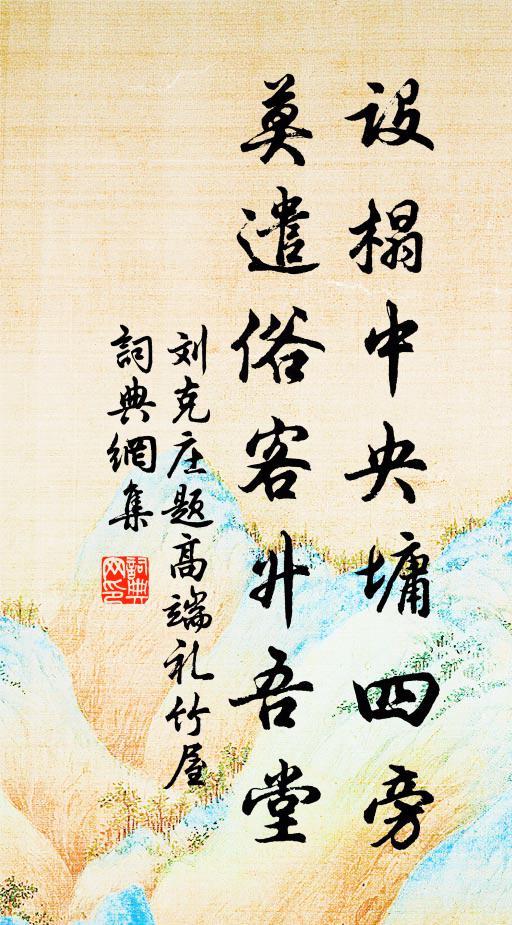 设榻中央墉四旁
莫遣俗客升吾堂
刘克庄题高端礼竹屋
詞典網集
詞典
网印